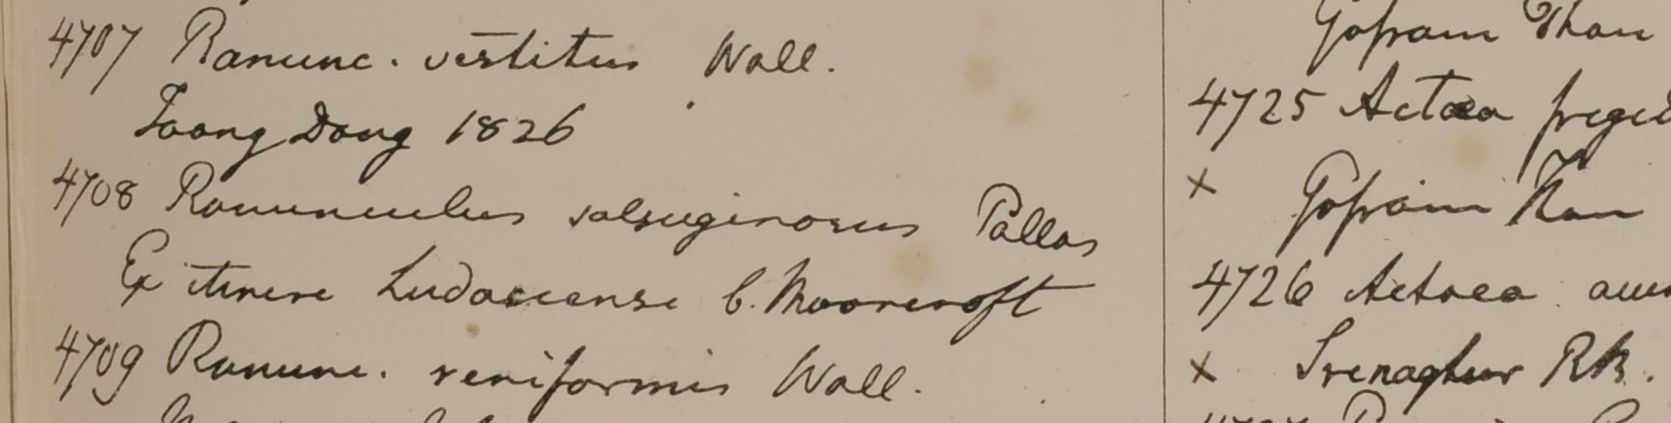 4707 Ranunc. vestitus Wall.
Taong Dong 1826
4708 Ranunculus salsuginosus Pallas
Ex itinere Ludaccense b. Moorcroft
4709 Ranunc. reniformis Wall.
Gossain Than
4725 Actaea frigid
x Gossain Than
4726 Actaea
x Srenaghur RB.